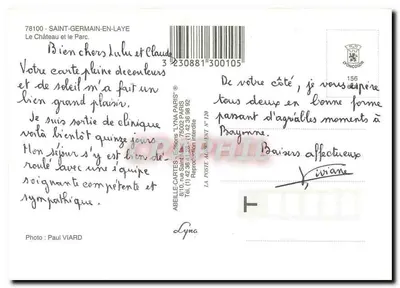 78100 - SAINT-GERMAIN-EN-LAYE
Le Château et le Parc.
Bien chers Lulu et Claude
Votre carte pleine de couleurs
et de soleil m'a fait un
bien grand plaisir.
Je suis sortie de clinique
voilà bientôt quinze jours
Mon séjour s'y est bien dé-
roulé avec une équipe
soignante compétente et
sympathique.
Photo : Paul VIARD
3 230881 300105
ABEILLE-CARTES Editions "LYNA-PARIS"
75002 PARIS
Reproduction interdite
LA POSTE AGRÉMENT N° 120
Lyna
156
De votre côté, je vous espère
tous deux en bonne forme
passant d'agréables moments à
Bayonne.
Baisers affectueux
Viviane